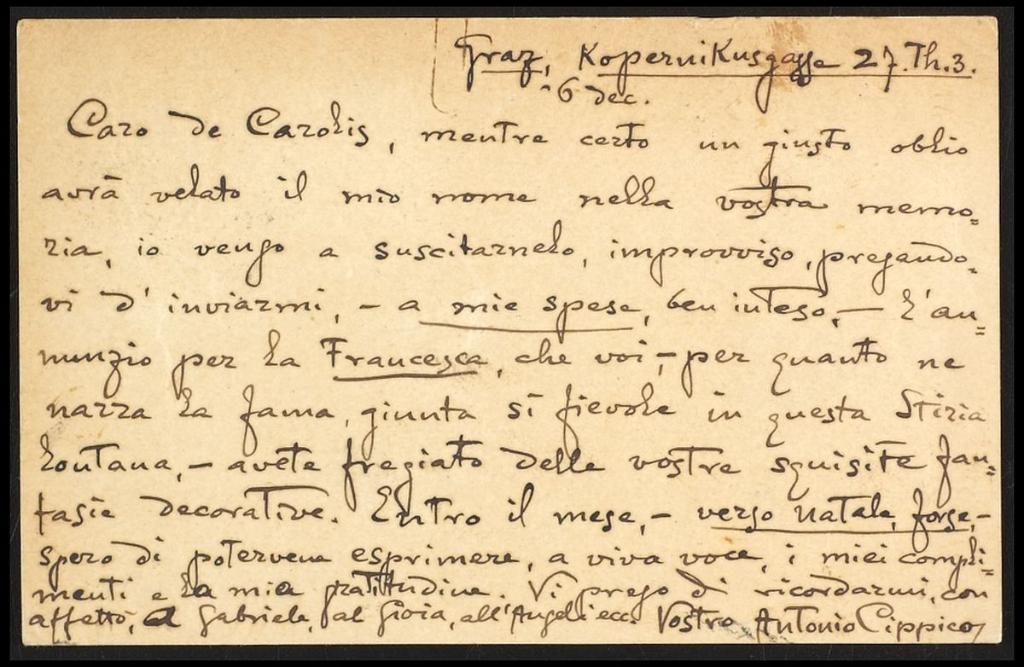 Graz, Kopernikusgasse 27. Th. 3.
6 dec.
Caro de Carolis, mentre certo un giusto oblio
avrà velato il mio nome nella vostra memo=
ria, io vengo a suscitarnelo, improvviso, pregando=
vi d'inviarmi, – a mie spese, ben inteso, – l'an=
nunzio per la Francesca, che voi, – per quanto ne
narra la fama, giunta sì fievole in questa Stiria
lontana, – avete fregiato delle vostre squisite fan=
tasie decorative. Entro il mese, – verso Natale, forse, –
spero di potervene esprimere, a viva voce, i miei compli=
menti e la mia gratitudine. Vi prego di ricordarmi, con
affetto, a Gabriele, al Gioia, all'Angeli ecc. Vostro Antonio Cippico